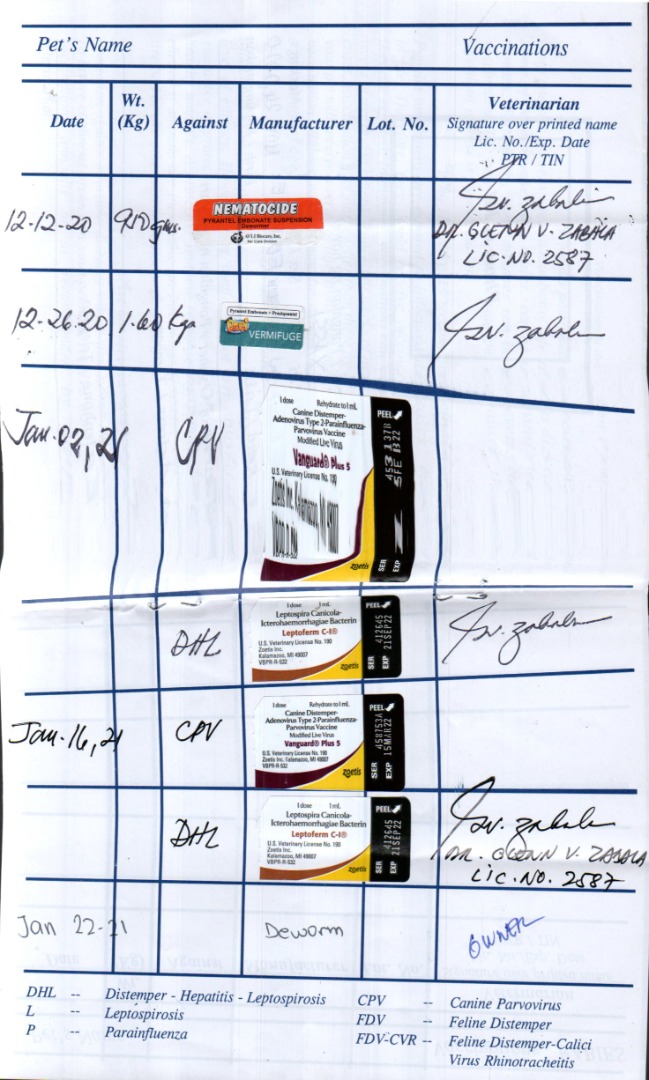 Pet's Name
Vaccinations
Date
Wt.
(Kg)
Against
Manufacturer
Lot. No.
Veterinarian
Signature over printed name
Lic. No./Exp. Date
PTR / TIN
12-12-20
950 gms.
NEMATOCIDE
PYRANTEL EMBONATE SUSPENSION
Dewormer
Pet Care Division
DR. GLENN V. ZABALA
LIC. NO. 2587
12-26-20
1.60 Kgs
Pyrantel Embonate + Praziquantel
VERMIFUGE
Jan. 02, 21
CPV
1 dose Rehydrate to 1 mL
Canine Distemper-
Adenovirus Type 2-Parainfluenza-
Parvovirus Vaccine
Modified Live Virus
Vanguard® Plus 5
U.S. Veterinary License No. 190
Zoetis Inc. Kalamazoo, MI 49007
zoetis
PEEL
SER
EXP
DHL
1 dose 1 mL
Leptospira Canicola-
Icterohaemorrhagiae Bacterin
Leptoferm C-I®
U.S. Veterinary License No. 190
Zoetis Inc.
Kalamazoo, MI 49007
VBPR-R-532
zoetis
PEEL
SER 412645
EXP 21SEP22
Jan. 16, 21
CPV
1 dose Rehydrate to 1 mL
Canine Distemper-
Adenovirus Type 2-Parainfluenza-
Parvovirus Vaccine
Modified Live Virus
Vanguard® Plus 5
U.S. Veterinary License No. 190
Zoetis Inc. Kalamazoo, MI 49007
VBPR-R-532
zoetis
PEEL
SER 458753A
EXP 15MAR22
DHL
1 dose 1 mL
Leptospira Canicola-
Icterohaemorrhagiae Bacterin
Leptoferm C-I®
U.S. Veterinary License No. 190
Zoetis Inc.
Kalamazoo, MI 49007
VBPR-R-532
zoetis
PEEL
SER 412645
EXP 21SEP22
DR. GLENN V. ZABALA
LIC. NO. 2587
Jan 22-21
Deworm
OWNER
DHL -- Distemper - Hepatitis - Leptospirosis
L -- Leptospirosis
P -- Parainfluenza
CPV -- Canine Parvovirus
FDV -- Feline Distemper
FDV-CVR -- Feline Distemper-Calici
Virus Rhinotracheitis